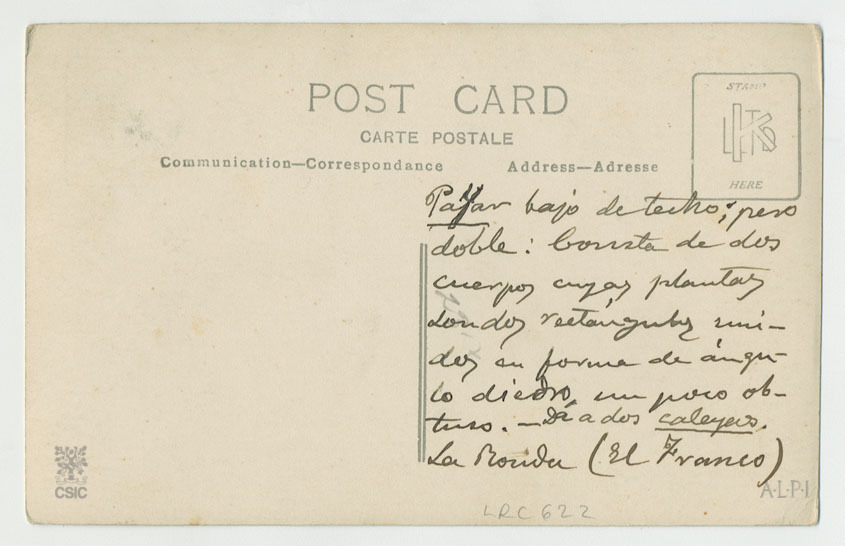 POST CARD
CARTE POSTALE
Communication—Correspondance Address—Adresse
STAMP
HERE
Payar bajo de techo; pero
doble: Consta de dos
cuerpos cuyas plantas
son dos rectángulos uni-
dos en forma de ángu-
lo diedro, un poco ob-
tuso. — Dá a dos caleyas.
La Ronda (El Franco)
CSIC
A·L·P·I
LRC622